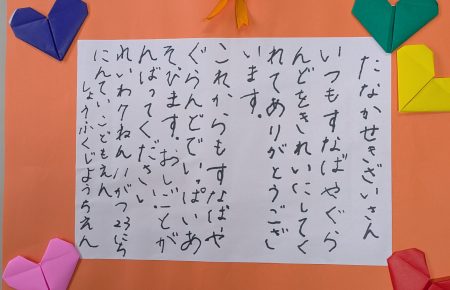 たなかせきざいさん
いつもすなばやぐら
んどをきれいにしてく
れてありがとうござい
います。
これからもすなばや
ぐらんどでいっぱいあ
そびます。おしごとが
んばってください
れいわ7ねん11がつ23にち
にんていこどもえん
しょうふくじようちえん